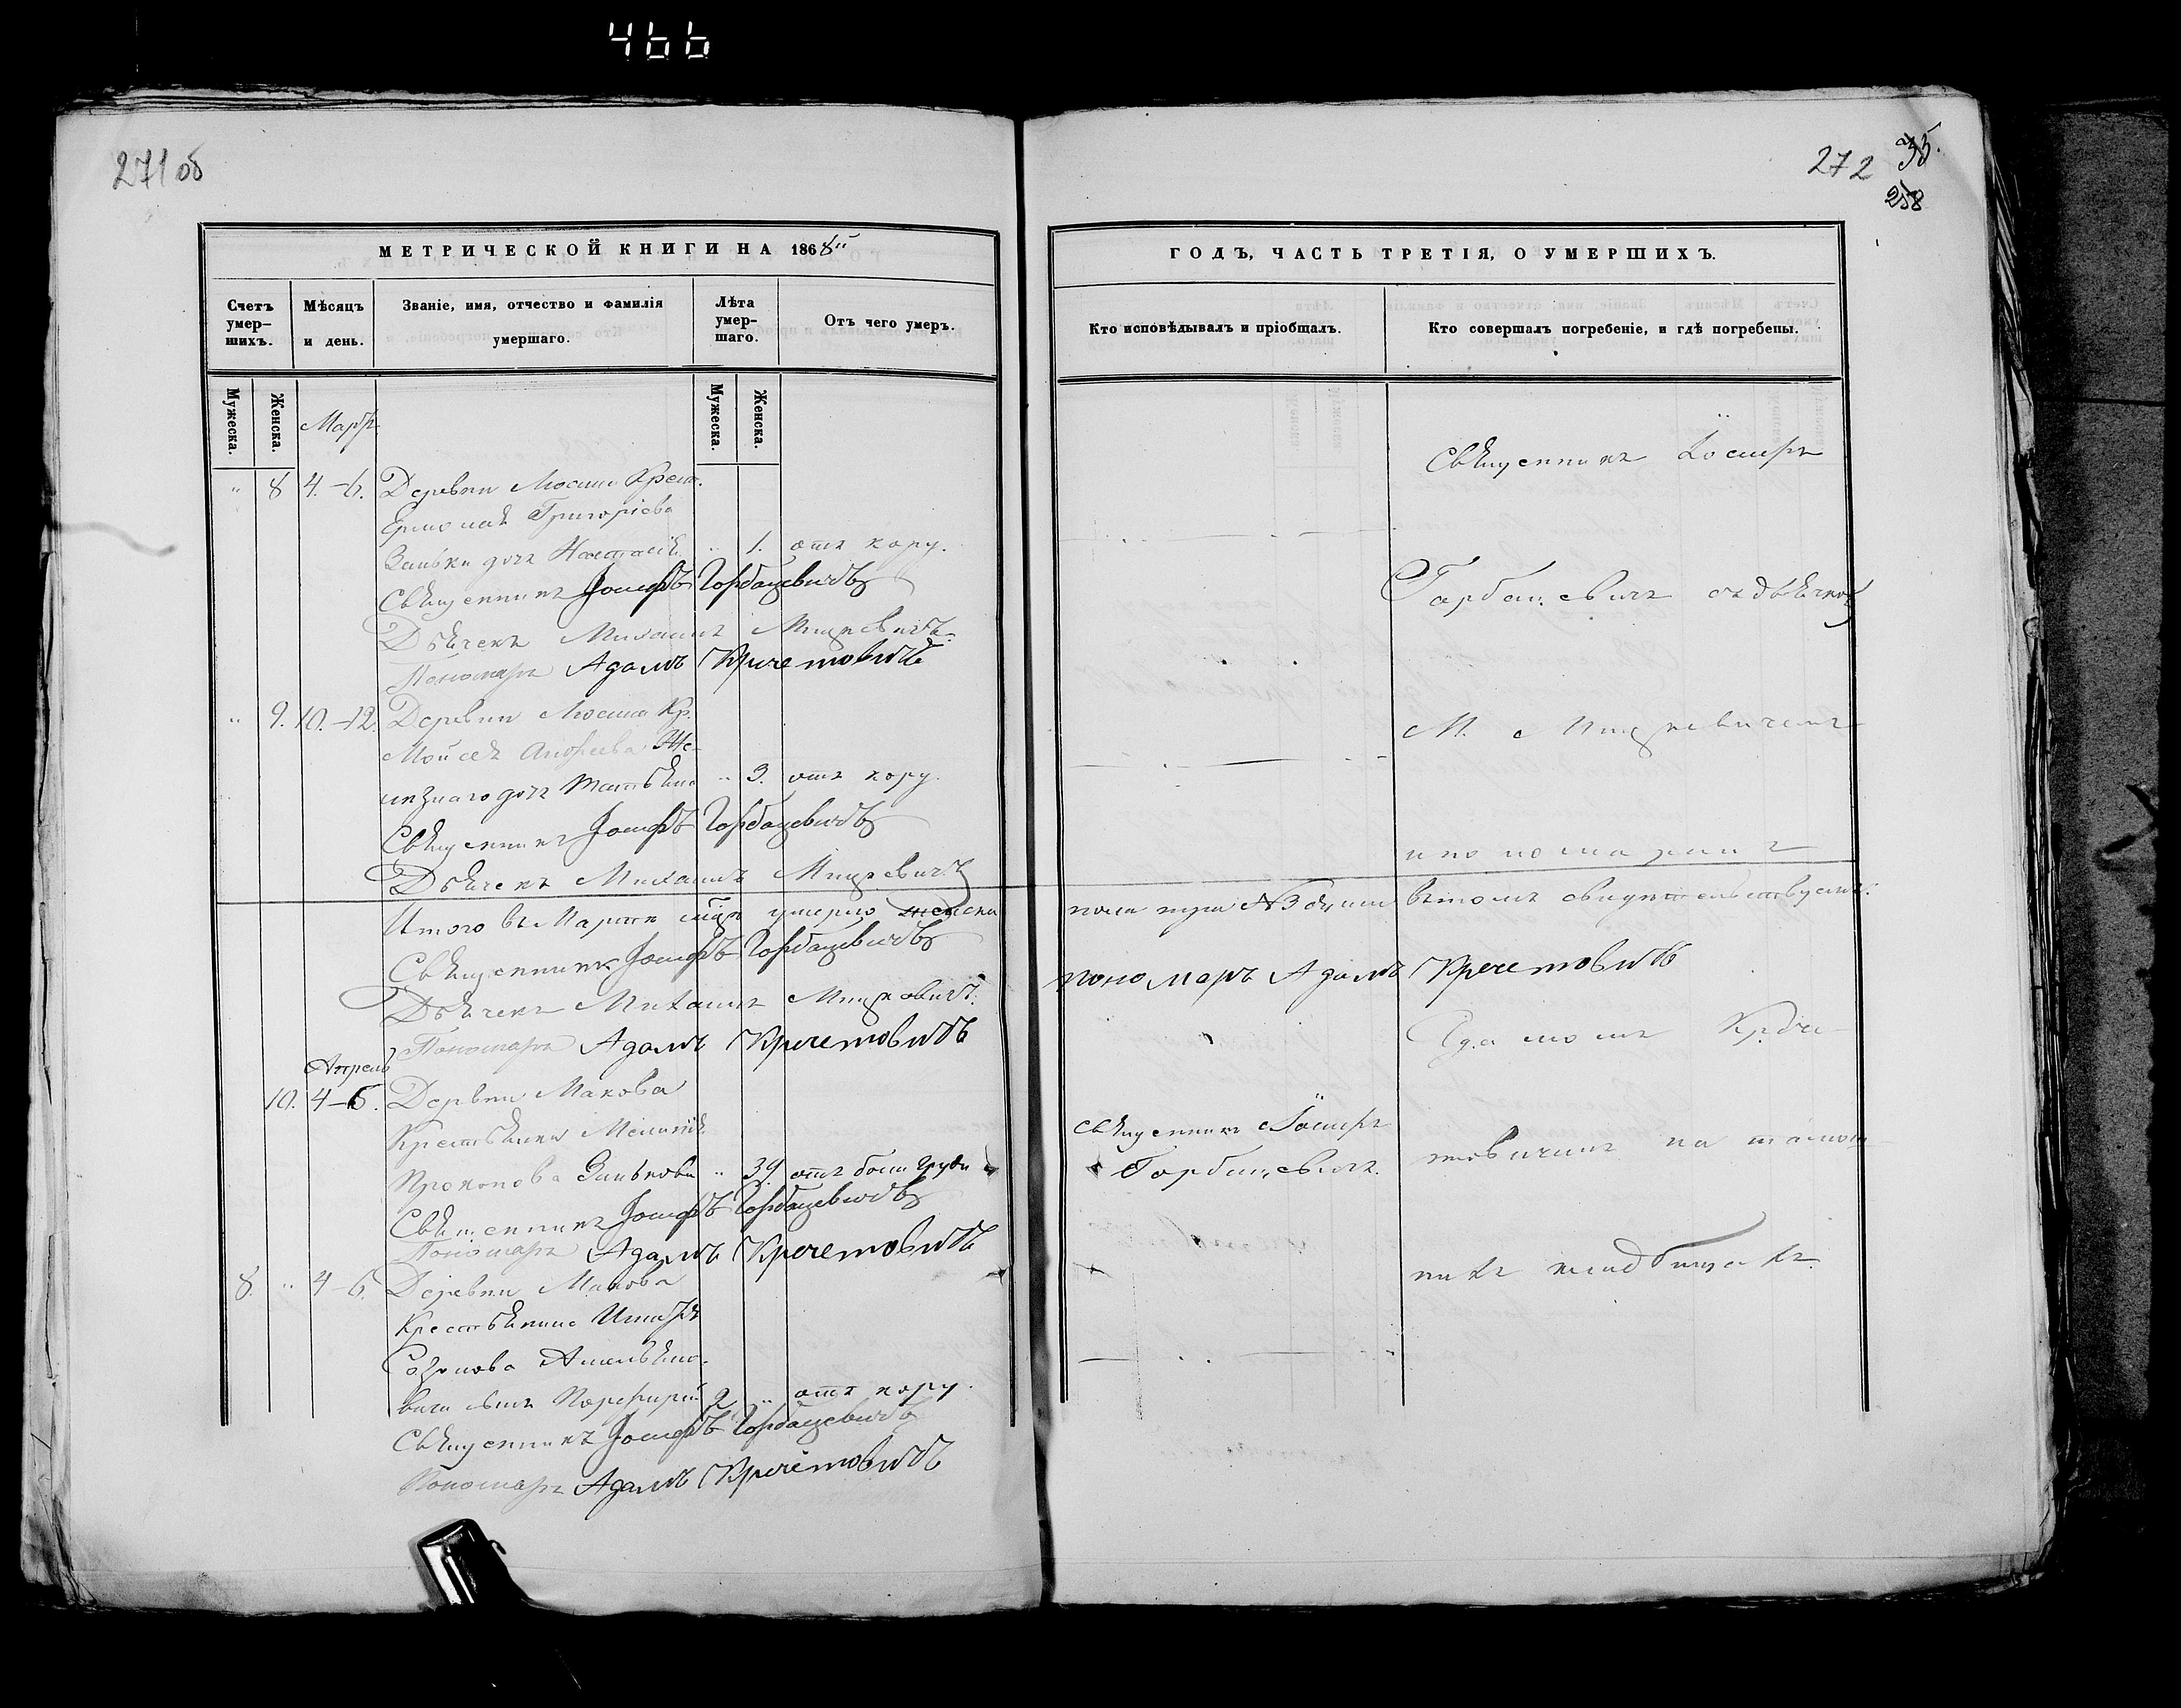 466
271 об
272 35.
258
МЕТРИЧЕСКОЙ КНИГИ НА 1868й
Счетъ умер-
шихъ.
Мѣсяцъ
и день.
Званіе, имя, отчество и фамилія
умершаго.
Лѣта
умер-
шаго.
Отъ чего умеръ.
Мужеска.
Женска.
Мартъ
Мужеска.
Женска.
" 8 4.-6. Деревни Мосина Крест.
Григоріева
дочь Настасія " 1. отъ кору.
Священникъ Іосифъ Горбацевичъ
Дьячекъ Михаилъ Мицкевичъ.
Пономарь Адамъ Кречетовичъ
" 9. 10.-12. Деревни Мосина Кр.
Мойсея Андреева Же-
дочь Татьяна " 3. отъ кору.
Священникъ Іосифъ Горбацевичъ
Дьячекъ Михаилъ Мицкевичъ
Итого въ Мартѣ мцѣ умерло женска
Священникъ Іосифъ Горбацевичъ
Дьячекъ Михаилъ Мицкевичъ.
Пономарь Адамъ Кречетовичъ
Апрель
10. 4-6. Деревни Макова
Крестьянка
Прокопова Занькова " 39. отъ боли груди
Священникъ Іосифъ Горбацевичъ
Пономарь Адамъ Кречетовичъ
8. " 4-6. Деревни Макова
Крестьянина
Созонова
сынъ Порфирій 2 " отъ кору.
Священникъ Іосифъ Горбацевичъ
Пономарь Адамъ Кречетовичъ
ГОДЪ, ЧАСТЬ ТРЕТІЯ, О УМЕРШИХЪ.
Кто исповѣдывалъ и пріобщалъ.
Кто совершалъ погребеніе, и гдѣ погребены.
Священникъ Іосифъ
Горбацевичъ съ дьячкомъ
М. Мицкевичемъ
и пономаремъ
пола въ томъ свидѣтельствуемъ:
пономарь Адамъ Кречетовичъ
Адамомъ Крече-
Священникъ Іосифъ
Горбацевичъ.
товичемъ на тамош-
нихъ кладбищахъ.